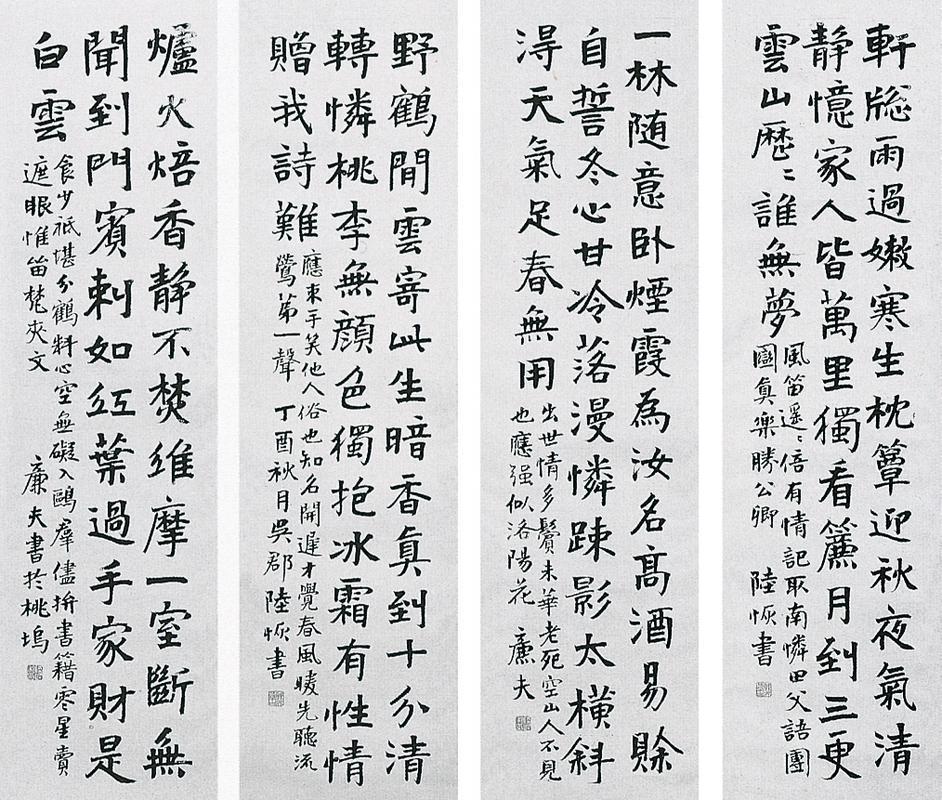 軒牕雨過嫩寒生枕簟迎秋夜氣清
静憶家人皆萬里獨看簾月到三更
雲山歷〻誰無夢
風笛遥〻倍有情記取南憐田父語團
圞真樂勝公卿 陸恢書
一林随意卧煙霞為汝名髙酒易賖
自誓冬心甘冷落漫憐踈影太橫斜
淂天氣足春無用
出世情多鬢未華老死空山人不見
也應强似洛陽花 廉夫
野鶴閒雲寄此生暗香真到十分清
轉憐桃李無顔色獨抱冰霜有性情
贈我詩難
應束手笑他人俗也知名開遲才覺春風暖先聽流
鶯苐一聲 丁酉秋月吳郡陸恢書
爐火焙香静不焚維摩一室斷無
聞到門賓刺如紅葉過手家財是
白雲
食少祇堪分鶴料心空無礙入鷗羣儘拚書籍零星賣
遮眼惟留梵夾文 廉夫書於桃塢